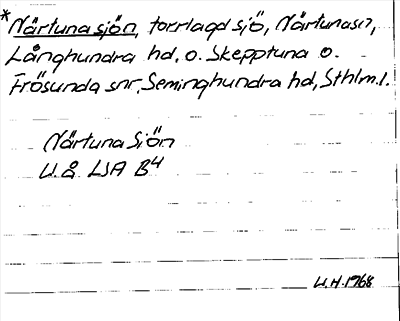 *Närtunasjön, torrlagd sjö, Närtunasn,
Långhundra hd. o. Skepptuna o.
Frösunda snr, Seminghundra hd, Sthlm.l.
Närtuna Siön
U.å. LSA B4
U.H. 1968